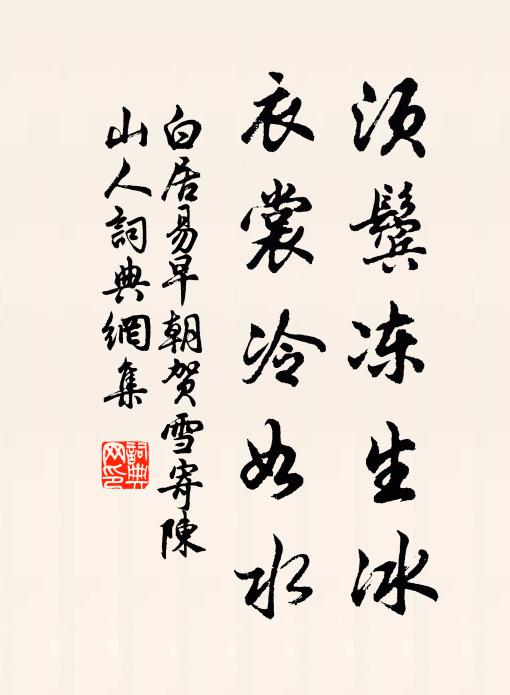 须鬓冻生冰
衣裳冷如水
白居易早朝賀雪寄陳
山人詞典網集
詞典
网印